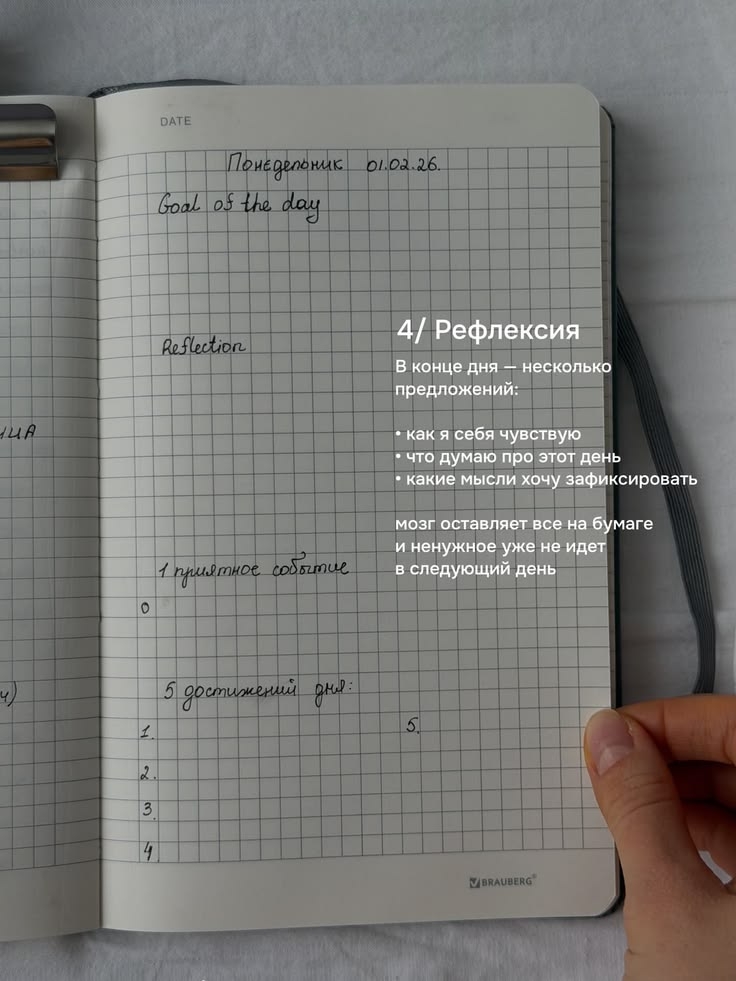 DATE
Понедельник 01.02.26.
Goal of the day
Reflection
4/ Рефлексия
В конце дня — несколько
предложений:
• как я себя чувствую
• что думаю про этот день
• какие мысли хочу зафиксировать
мозг оставляет все на бумаге
и ненужное уже не идет
в следующий день
1 приятное событие
0
5 достижений дня:
1.
5.
2.
3
4
BRAUBERG®